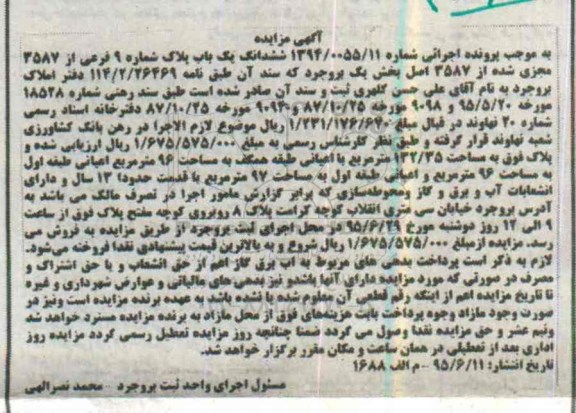 آگهی مزایده
به موجب پرونده اجرائی شماره ۱۳۹۴/۰۰۵۵/۱۱ ششدانگ یک باب پلاک شماره ۹ فرعی از ۳۵۸۷
مجزی شده از ۳۵۸۷ اصل بخش یک بروجرد که سند آن طبق نامه ۱۱۴/۲/۲۶۴۶۹ دفتر املاک
بروجرد به نام آقای علی حسن گلهری ثبت و سند آن صادر شده است طبق سند رهنی شماره ۱۸۵۲۸
مورخه ۹۵/۵/۲۰ و ۹۰۹۸ مورخه ۸۷/۱۰/۲۵ و ۹۰۹۴ مورخه ۸۷/۱۰/۲۵ دفترخانه اسناد رسمی
شماره ۲۰ نهاوند در قبال مبلغ ۱/۲۳۱/۱۷۶/۶۴۰ ریال موضوع لازم الاجرا در رهن بانک کشاورزی
شعبه نهاوند قرار گرفته و طبق نظر کارشناس رسمی به مبلغ ۱/۶۷۵/۵۷۵/۰۰۰ ریال ارزیابی شده و
پلاک فوق به مساحت ۱۳۲/۳۵ مترمربع با اعیانی طبقه همکف به مساحت ۹۶ مترمربع اعیانی طبقه اول
به مساحت ۹۶ مترمربع و اعیانی طبقه اول به مساحت ۹۷ مترمربع با قدمت حدودا ۱۳ سال و دارای
انشعابات آب و برق و گاز ومحوطه‌سازی که برابر گزارش مامور اجرا در تصرف مالک می باشد به
آدرس بروجرد خیابان سی متری انقلاب کوچه کرامت پلاک ۸ روبروی کوچه مفتح پلاک فوق از ساعت
۹ الی ۱۲ روز دوشنبه مورخ ۹۵/۶/۲۹ در محل اجرای ثبت بروجرد از طریق مزایده به فروش می
رسد. مزایده ازمبلغ ۱/۶۷۵/۵۷۵/۰۰۰ ریال شروع و به بالاترین قیمت پیشنهادی نقدا فروخته می‌شود.
لازم به ذکر است پرداخت بدهی های مربوط به آب برق گاز اعم از حق انشعاب و یا حق اشتراک و
مصرف در صورتی که مورد مزایده دارای آنها باشدو نیز بدهی های مالیاتی و عوارض شهرداری و غیره
تا تاریخ مزایده اعم از اینکه رقم قطعی آن معلوم شده یا نشده باشد به عهده برنده مزایده است ونیز در
صورت وجود مازاد وجوه پرداختی بابت هزینه‌های فوق از محل مازاد به برنده مزایده مسترد خواهد شد
ونیم عشر و حق مزایده نقدا وصول می گردد ضمنا چنانچه روز مزایده تعطیل رسمی گردد مزایده روز
اداری بعد از تعطیلی در همان ساعت و مکان مقرر برگزار خواهد شد.
تاریخ انتشار: ۹۵/۶/۱۱ - م الف ۱۶۸۸
مسئول اجرای واحد ثبت بروجرد - محمد نصرالهی